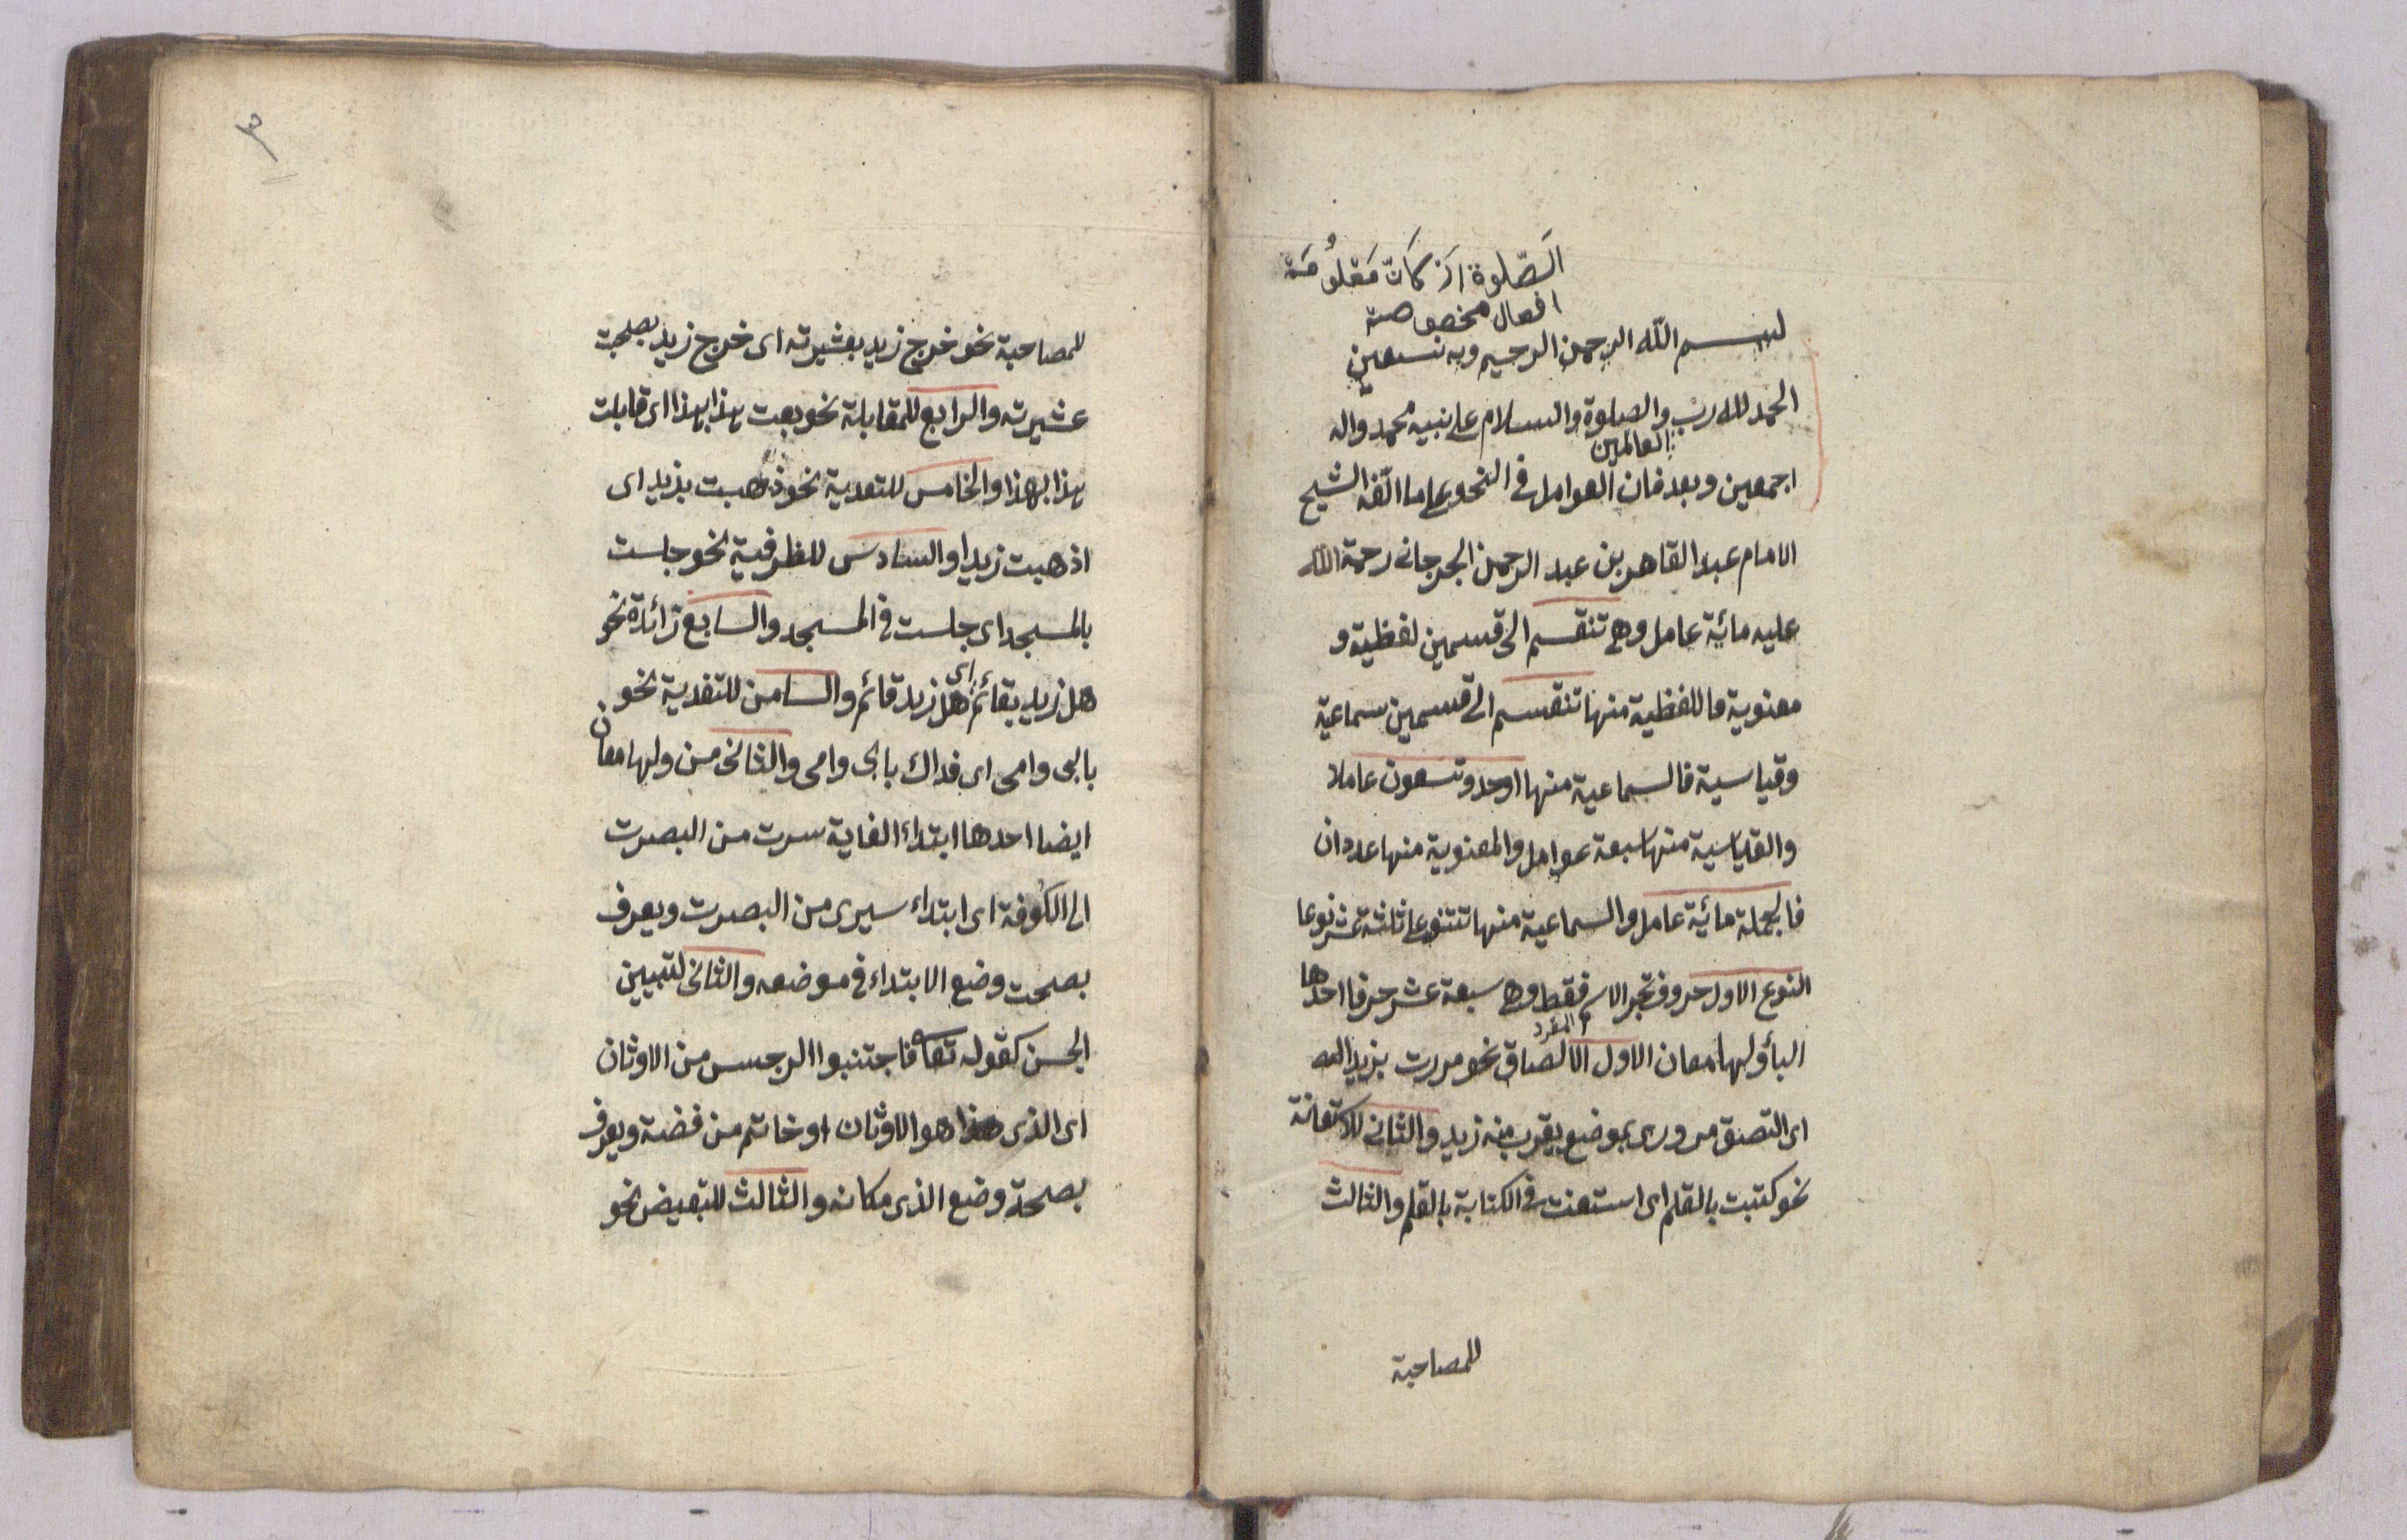 الصَّلوة ارکان مَعْلُومَة
افعال مخصوصة
بسم الله الرحمن الرحيم وبه نستعين
الحمد لله رب العالمين والصلوة والسلام على نبيه محمد واله
اجمعين وبعد فان العوامل فى النحو على ما الّفه الشيخ
الامام عبد القاهر بن عبد الرحمن الجرجانى رحمة الله
عليه مائة عامل وهى تنقسم الى قسمين لفظية و
معنوية فاللفظية منها تنقسم الى قسمين سماعية
وقياسية فالسماعية منها احد وتسعون عاملا
والقياسية منها سبعة عوامل والمعنوية منها عددان
فالجملة مائة عامل والسماعية منها تتنوع على ثلثة عشر نوعا
النوع الاول حروف تجر الاسم المفرد فقط وهى سبعة عشر حرفا احدها
البأ ولها معان الاول الالصاق نحو مررت بزيد
اى التصق مرورى بموضع يقرب منه زيد والثانى للاستعانة
نحو كتبت بالقلم اى استعنت فى الكتابة بالقلم والثالث
للمصاحبة
٣
للمصاحبة نحو خرج زيد بعشيرته اى خرج زيد بصلحبت
عشيرته والرابع للمقابلة نحو بعت هذا بهذا اى قابلت
هذا بهذا والخامس للتعدية نحو ذهبت بزيد اى
اذهبت زيدا والسادس للظرفية نحو جلست
بالمسجد اى جلست فى المسجد والسابع زائدة نحو
هل زيد بقائم اى هل زيد قائم والسامن للتفدية نحو
بابى وامى اى فداك بابى وامى والثانى من ولها معان
ايضا احدها ابتداء الغاية سرت من البصرت
الى الكوفة اى ابتداء سيرى من البصرت ويعرف
بصحت وضع الابتداء فى موضعه والثانى لتبيين
الجنس كقوله تعا فاجتنبوا الرجس من الاوثان
اى الذى هو الاوثان او خاتم من فضة ويعرف
بصحة وضع الذى مكانه والثالث للتبعيض نحو